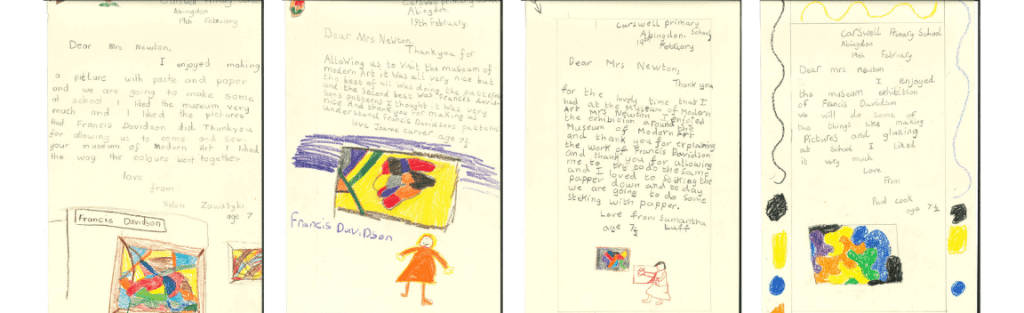 Carswell Primary School
Abingdon
19th February
Dear Mrs Newton,
I enjoyed making
a picture with paste and paper
and we are going to make some
at school I liked the museum very
much and I liked the pictures
that Francis Davidson did Thankyou
for allowing us to come and see
your museum of Modern Art I liked
the way the colours went together
love
from
age 7
Francis Davidson
Carswell primary School
Abingdon
19th February
Dear Mrs Newton,
Thankyou for
Allowing us to visit the museum of
modern Art it was all very nice but
the best of all was doing the patterns
and the second best was Francis david-
sons patterns I thought it was very
nice And thank you for making us
understand Francis Davidsons patterns
love Joanne carver age 7½
Francis Davidson
Carswell primary
Abingdon School
19th February
Dear Mrs Newton,
Thank you
for the lovely time that I
had at the Museum of Modern
Art Mrs Newton I enjoyed
the exhibition around the
Museum of Modern Art
and thank you for explaining
the work of Francis Davidson
and thank you for allowing
me to the do the same
and I loved to sticking the
papper down and to day
we are going to do some
sticking with papper.
Love from Samantha
age 7½ buff
Carswell Primary School
Abingdon
19th February
Dear mrs newton
I enjoyed
the museum exhibition
of Francis Davidson
we will do some of
the things like making
Pictures and glusing
at School I Liked
is very much
Love
From
Paul Cook
age 7½